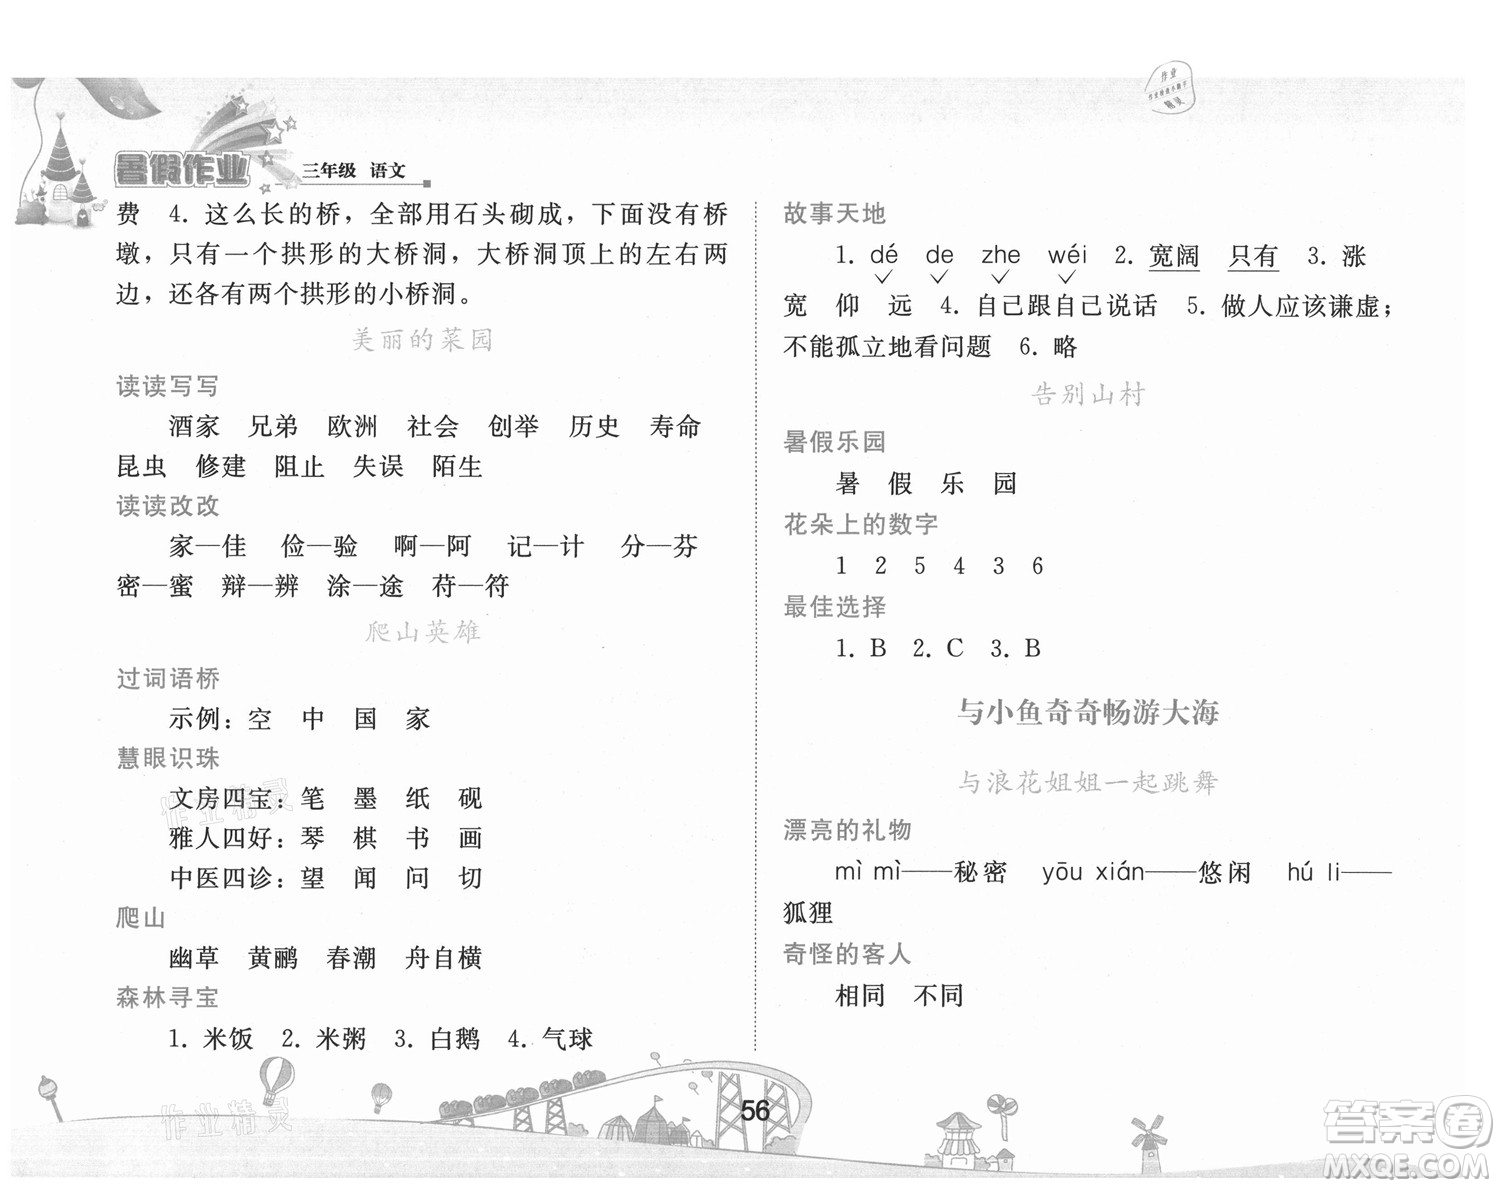 暑假作业 三年级 语文
费 4. 这么长的桥，全部用石头砌成，下面没有桥
墩，只有一个拱形的大桥洞，大桥洞顶上的左右两
边，还各有两个拱形的小桥洞。
美丽的菜园
读读写写
酒家 兄弟 欧洲 社会 创举 历史 寿命
昆虫 修建 阻止 失误 陌生
读读改改
家—佳 俭—验 啊—阿 记—计 分—芬
密—蜜 辩—辨 涂—途 苻—符
爬山英雄
过词语桥
示例：空 中 国 家
慧眼识珠
文房四宝：笔 墨 纸 砚
雅人四好：琴 棋 书 画
中医四诊：望 闻 问 切
爬山
幽草 黄鹂 春潮 舟自横
森林寻宝
1. 米饭 2. 米粥 3. 白鹅 4. 气球
故事天地
1. dé de zhe wéi 2. 宽阔 只有 3. 涨
宽 仰 远 4. 自己跟自己说话 5. 做人应该谦虚；
不能孤立地看问题 6. 略
告别山村
暑假乐园
暑 假 乐 园
花朵上的数字
1 2 5 4 3 6
最佳选择
1. B 2. C 3. B
与小鱼奇奇畅游大海
与浪花姐姐一起跳舞
漂亮的礼物
mì mì——秘密 yōu xián——悠闲 hú li——
狐狸
奇怪的客人
相同 不同
56
作业精灵
作业精灵
作业
答案卷
MXQE.COM